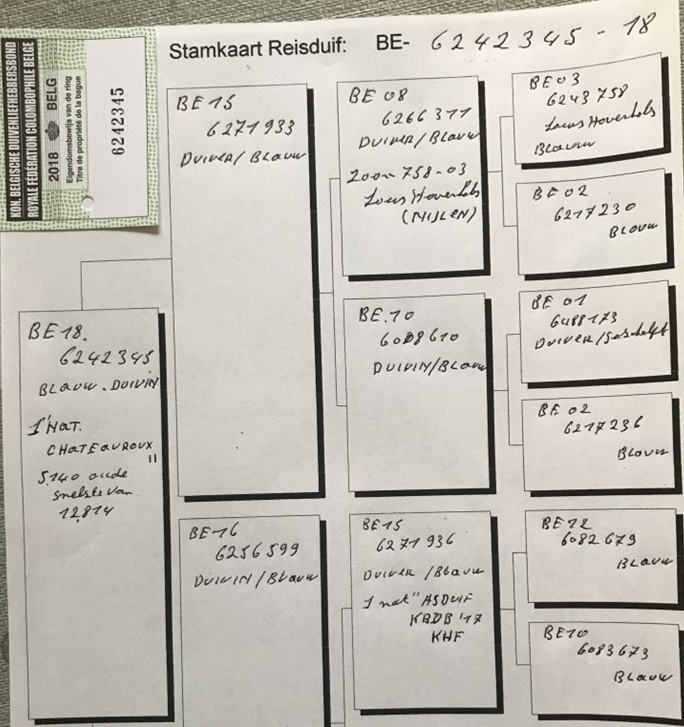 KON. BELGISCHE DUIVENLIEFHEBBERSBOND
ROYALE FEDERATION COLOMBOPHILE BELGE
2018 BELG
Eigendomsbewijs van de ring
Titre de propriété de la bague
6242345
Stamkaart Reisduif: BE- 6242345-18
BE 18.
6242345
BLAUW. DUIVIN
1' NAT.
CHATEAUROUX II
5.140 oude
snelste van
12.814
BE 15
6271933
DUIVER/BLAUW
BE-16
6256599
DUIVIN/BLAUW
BE 08
6266311
DUIVER/BLAUW
ZOON 758-03
Louis Hoverhols
(NIJLEN)
BE.10
6088610
DUIVIN/BLAUW
BE 15
6271936
DUIVER/BLAUW
1 nat" ASDUIF
KBDB '17
KHF
BE 03
6243758
Louis Hoverhols
BLAUW
BE 02
6217230
BLAUW
BE 01
6488173
DUIVER/Geschelpt
BE 02
6217236
BLAUW
BE 12
6082679
BLAUW
BE 10
6083673
BLAUW